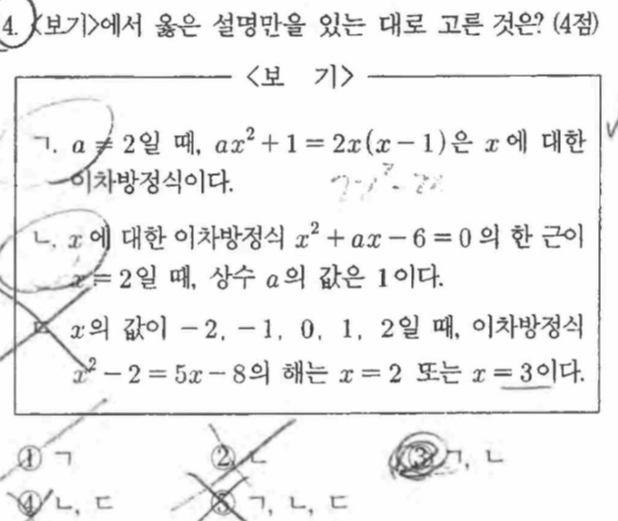 4. <보기>에서 옳은 설명만을 있는 대로 고른 것은? (4점)
<보 기>
ㄱ. a ≠ 2일 때, ax² + 1 = 2x(x − 1)은 x에 대한
이차방정식이다.
ㄴ. x에 대한 이차방정식 x² + ax − 6 = 0의 한 근이
x = 2일 때, 상수 a의 값은 1이다.
ㄷ. x의 값이 −2, −1, 0, 1, 2일 때, 이차방정식
x² − 2 = 5x − 8의 해는 x = 2 또는 x = 3이다.
① ㄱ ② ㄴ ③ ㄱ, ㄴ
④ ㄴ, ㄷ ⑤ ㄱ, ㄴ, ㄷ